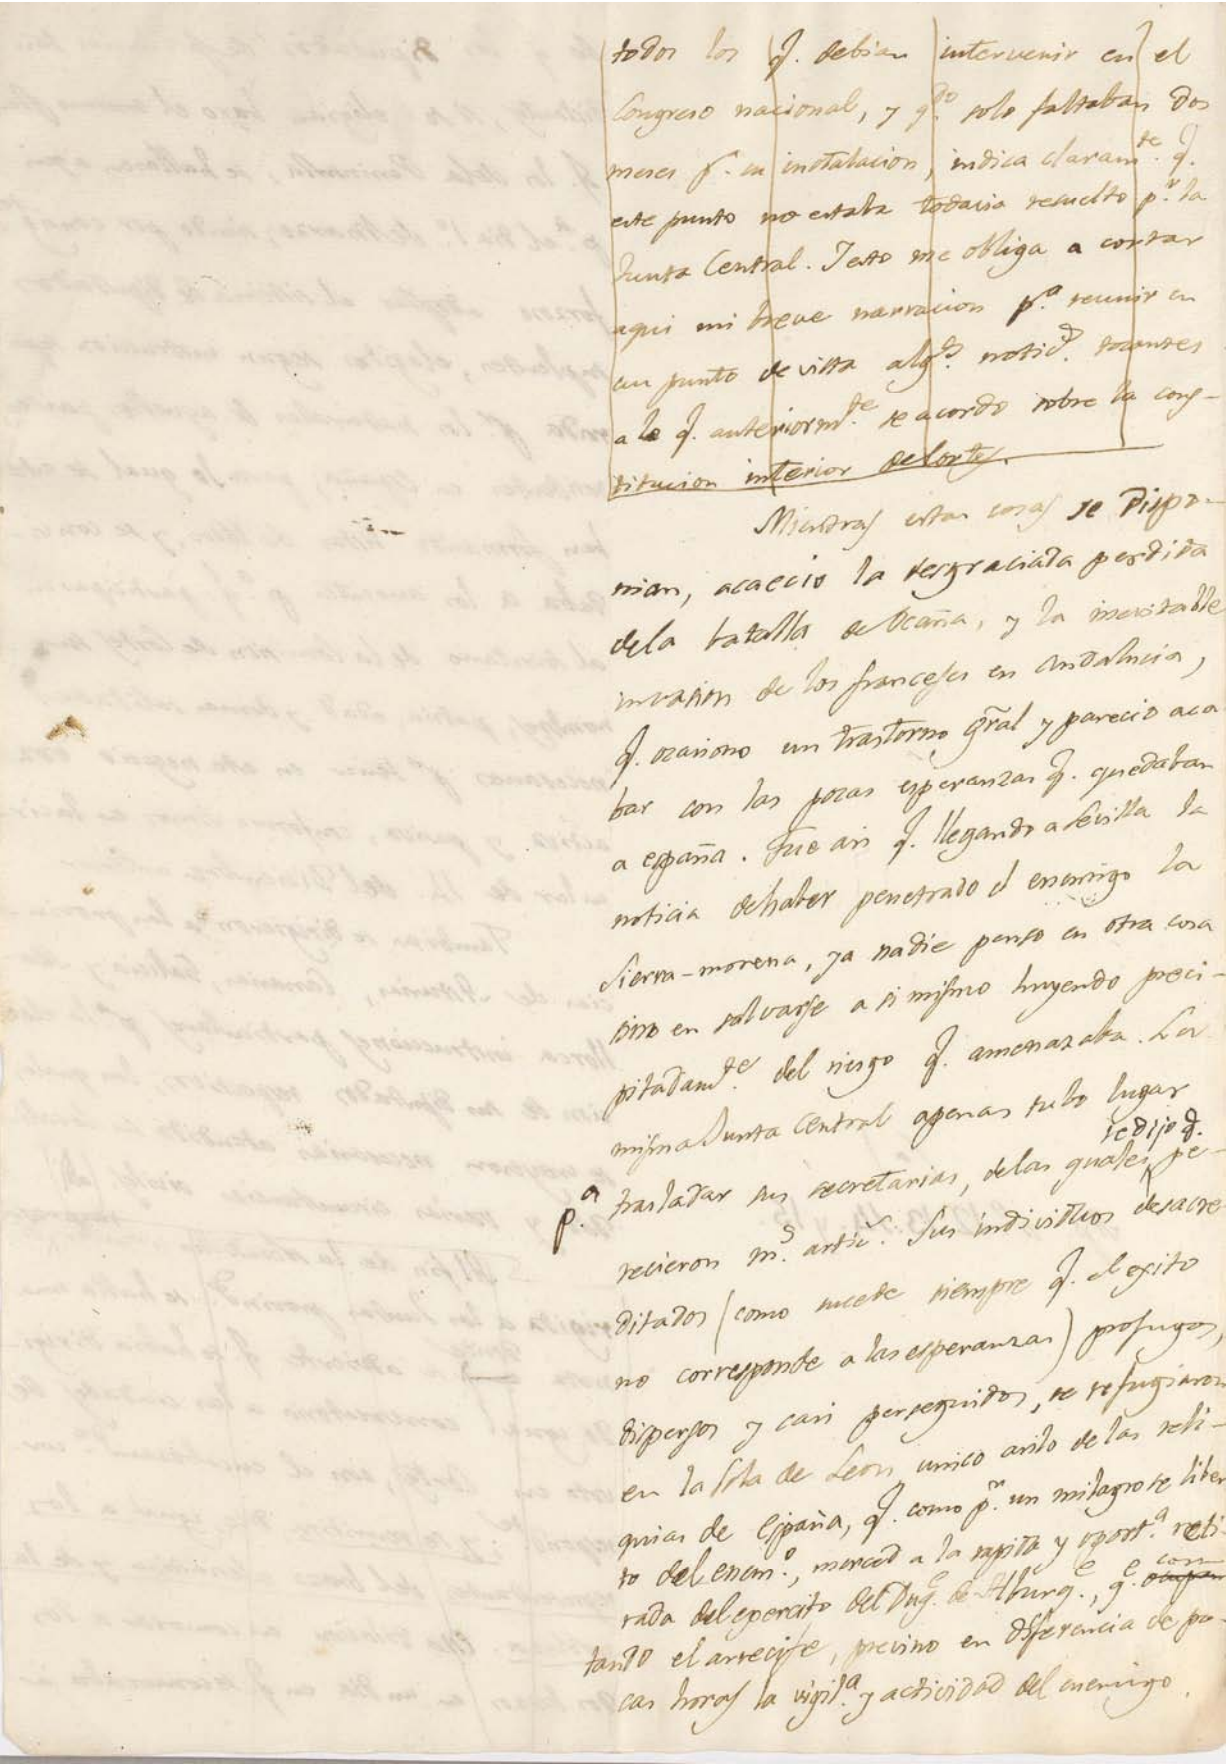 todos los q. debian intervenir en el
Congreso nacional, y qdo. solo faltaban dos
meses pa. su instalacion, indica claramte. q.
este punto no estaba todavia resuelto pr. la
Junta Central. Y esto me obliga a cortar
aqui mi breve narracion pa. reunir en
un punto de vista algs. notics. tocantes
a lo q. anteriormte. se acordo sobre la cons-
titucion interior de Cortes.
Mientras estas cosas se dispo-
nian, acaecio la desgraciada perdida
dela batalla de Ocaña, y la inevitable
invasion de los franceses en Andalucia,
q. ocasiono un trastorno gral y parecio aca
bar con las pocas esperanzas q. quedaban
a españa. Fue asi q. llegando a Sevilla la
noticia dehaber penetrado el enemigo la
Sierra-morena, ya nadie penso en otra cosa
sino en salvarse a si mismo huyendo preci-
pitadamte. del riesgo q. amenazaba. La
misma Junta Central apenas tubo lugar
se dijo q.
pa. trasladar sus secretarias, delas quales pe-
recieron ms. artic. Sus individuos desacre
ditados (como sucede siempre q. el exito
no corresponde a las esperanzas) profugos,
dispersos y casi perseguidos, se refugiaron
en la Isla de Leon, unico asilo de las reli-
quias de España, q. como pr. un milagro se liber
to del enemo., merced a la rapida y oporta. reti
rada del exercito del Duqe. de Alburqe., qe. cor
tando el arrecife, previno en diferencia de po-
cas horas la vigila. y actividad del enemigo.